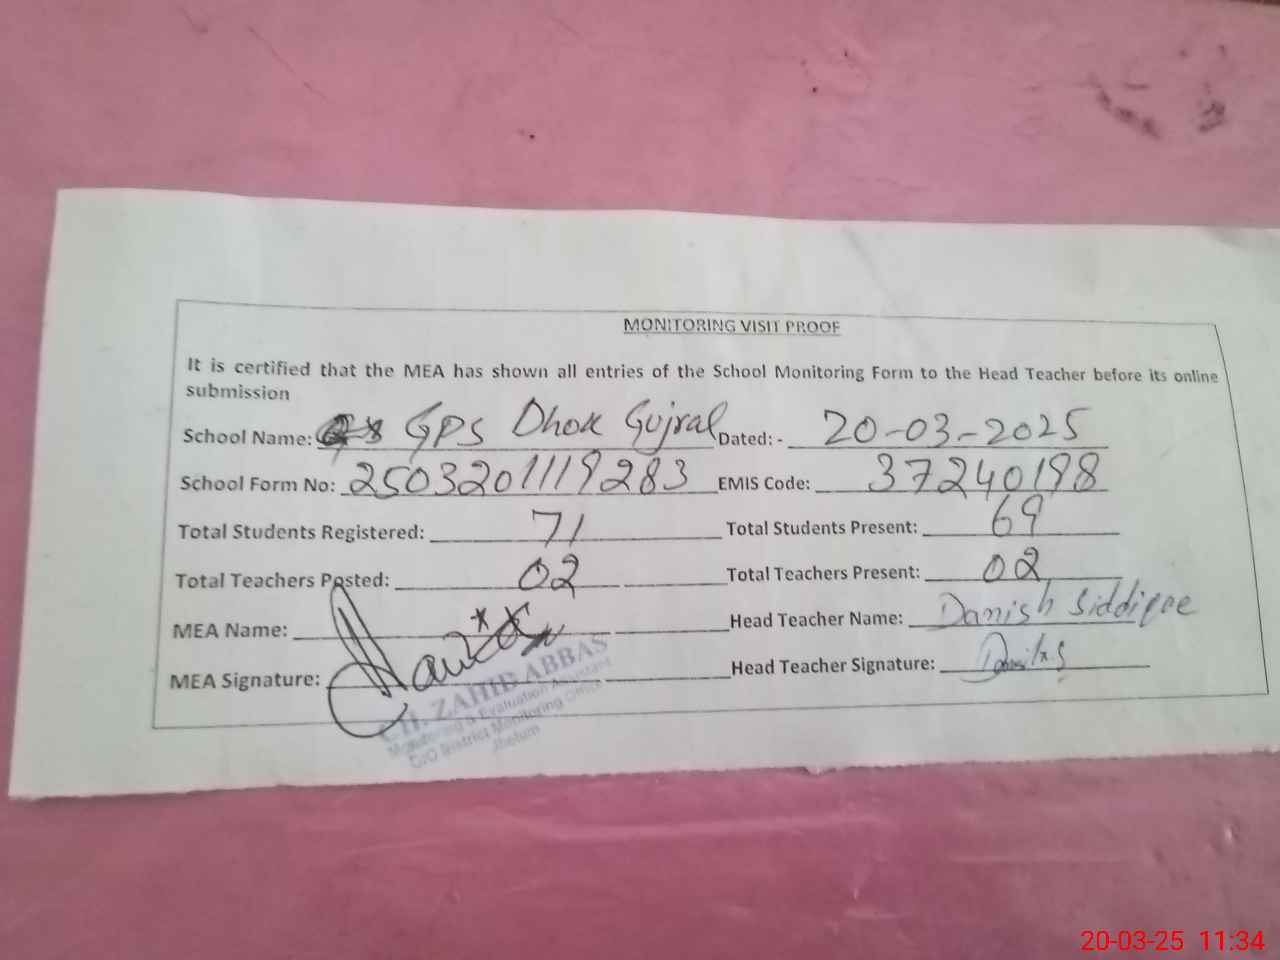 MONITORING VISIT PROOF
It is certified that the MEA has shown all entries of the School Monitoring Form to the Head Teacher before its online
submission
School Name: GPS Dhok Gujral Dated: - 20-03-2025
School Form No: 2503201119283 EMIS Code: 37240198
Total Students Registered: 71 Total Students Present: 69
Total Teachers Posted: 02 Total Teachers Present: 02
MEA Name: Head Teacher Name: Danish Siddique
MEA Signature: Head Teacher Signature:
CH. ZAHIB ABBAS
Monitoring & Evaluation Assistant
O/O District Monitoring Office
Jhelum
20-03-25 11:34